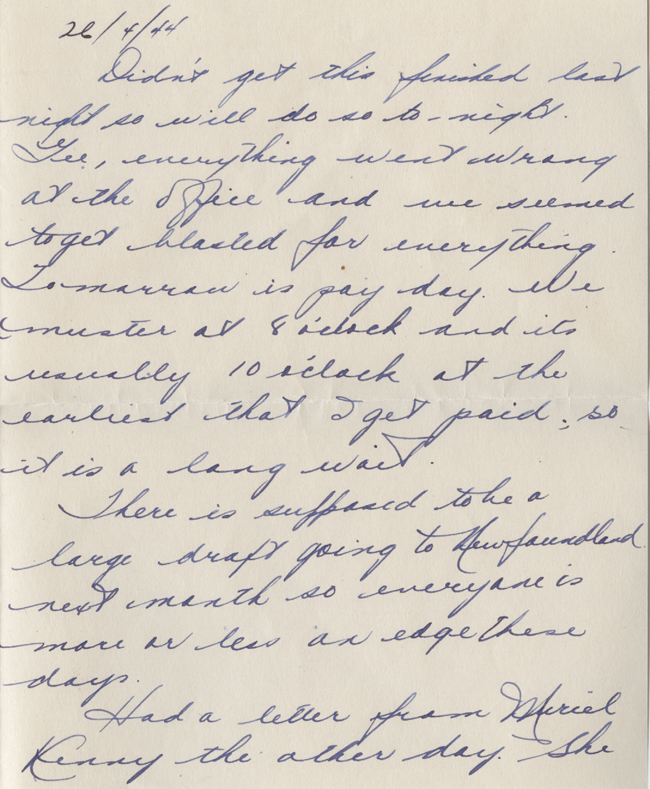 26/4/44
Didn't get this finished last
night so will do so to-night.
Gee, everything went wrong
at the office and we seemed
to get blasted for everything.
Tomorrow is pay day. We
muster at 8 o'clock and its
usually 10 o'clock at the
earliest that I get paid, so
it is a long wait.
There is supposed to be a
large draft going to Newfoundland
next month so everyone is
more or less on edge these
days.
Had a letter from Muriel
Kenny the other day. She